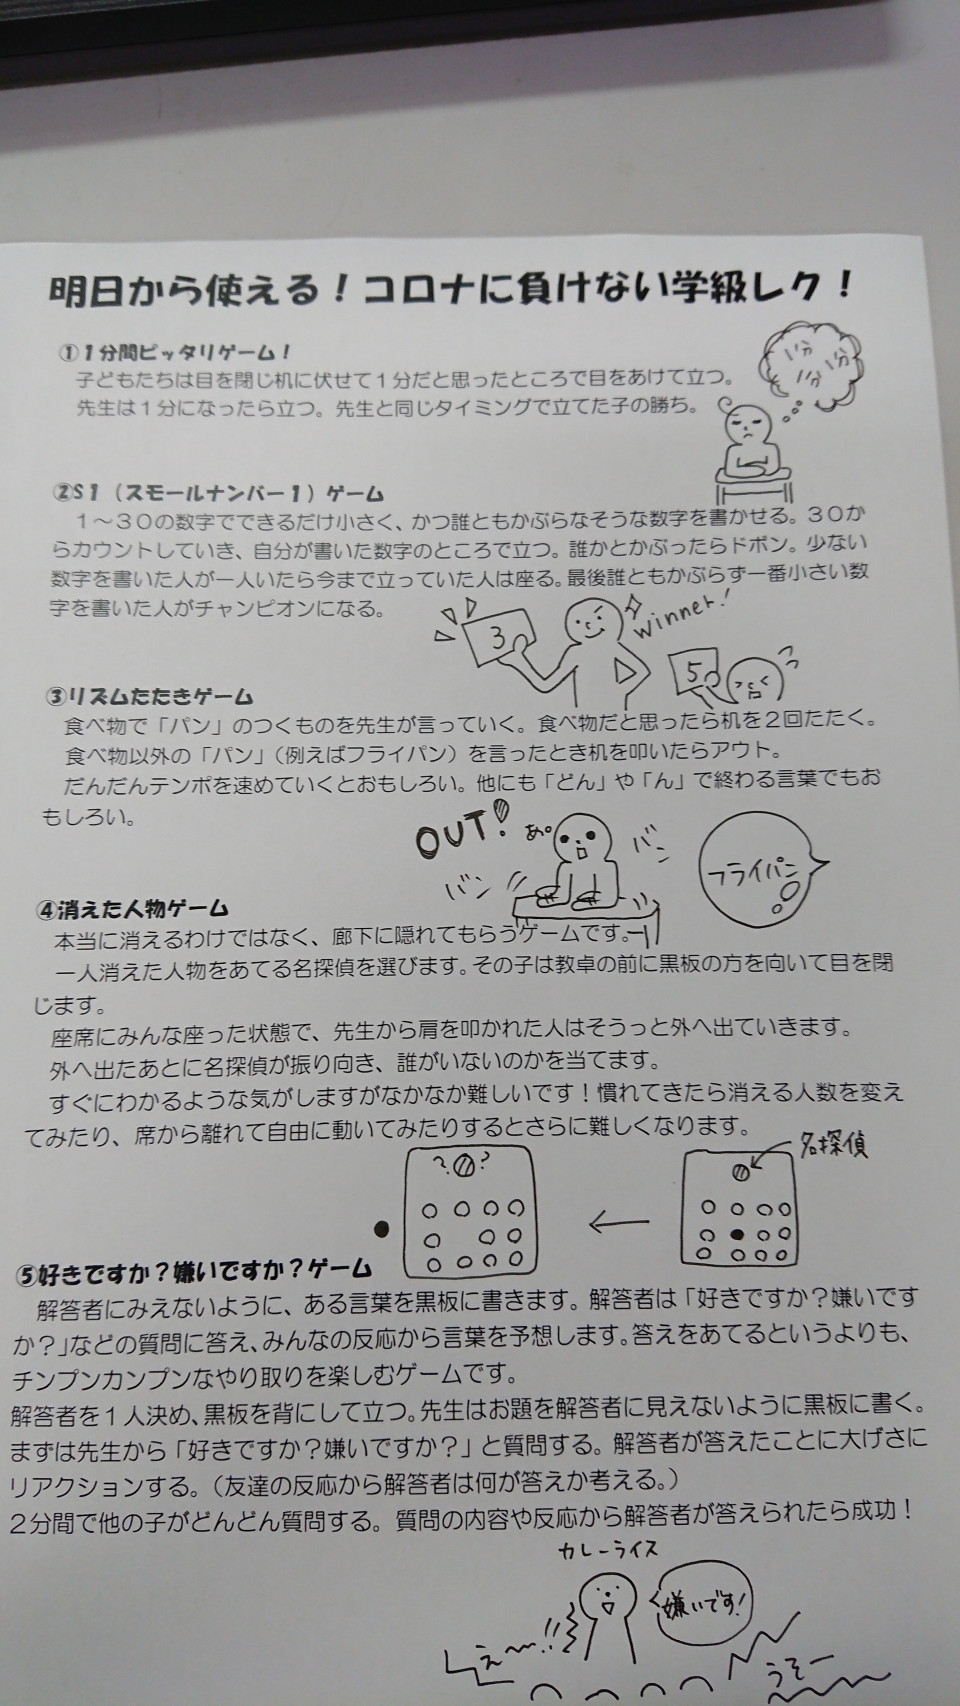 明日から使える！コロナに負けない学級レク！
①１分間ピッタリゲーム！
子どもたちは目を閉じ机に伏せて１分だと思ったところで目をあけて立つ。
先生は１分になったら立つ。先生と同じタイミングで立てた子の勝ち。
1分
1分
1分
②S１（スモールナンバー１）ゲーム
１～３０の数字でできるだけ小さく、かつ誰ともかぶらなそうな数字を書かせる。３０か
らカウントしていき、自分が書いた数字のところで立つ。誰かとかぶったらドボン。少ない
数字を書いた人が一人いたら今まで立っていた人は座る。最後誰ともかぶらず一番小さい数
字を書いた人がチャンピオンになる。
3
winner!
5
③リズムたたきゲーム
食べ物で「パン」のつくものを先生が言っていく。食べ物だと思ったら机を２回たたく。
食べ物以外の「パン」（例えばフライパン）を言ったとき机を叩いたらアウト。
だんだんテンポを速めていくとおもしろい。他にも「どん」や「ん」で終わる言葉でもお
もしろい。
OUT!
あ。
バン
バン
フライパン
④消えた人物ゲーム
本当に消えるわけではなく、廊下に隠れてもらうゲームです。
一人消えた人物をあてる名探偵を選びます。その子は教卓の前に黒板の方を向いて目を閉
じます。
座席にみんな座った状態で、先生から肩を叩かれた人はそうっと外へ出ていきます。
外へ出たあとに名探偵が振り向き、誰がいないのかを当てます。
すぐにわかるような気がしますがなかなか難しいです！慣れてきたら消える人数を変え
てみたり、席から離れて自由に動いてみたりするとさらに難しくなります。
名探偵
? ?
⑤好きですか？嫌いですか？ゲーム
解答者にみえないように、ある言葉を黒板に書きます。解答者は「好きですか？嫌いです
か？」などの質問に答え、みんなの反応から言葉を予想します。答えをあてるというよりも、
チンプンカンプンなやり取りを楽しむゲームです。
解答者を１人決め、黒板を背にして立つ。先生はお題を解答者に見えないように黒板に書く。
まずは先生から「好きですか？嫌いですか？」と質問する。解答者が答えたことに大げさに
リアクションする。（友達の反応から解答者は何が答えか考える。）
２分間で他の子がどんどん質問する。質問の内容や反応から解答者が答えられたら成功！
カレーライス
嫌いです!
え〜!!
うそー